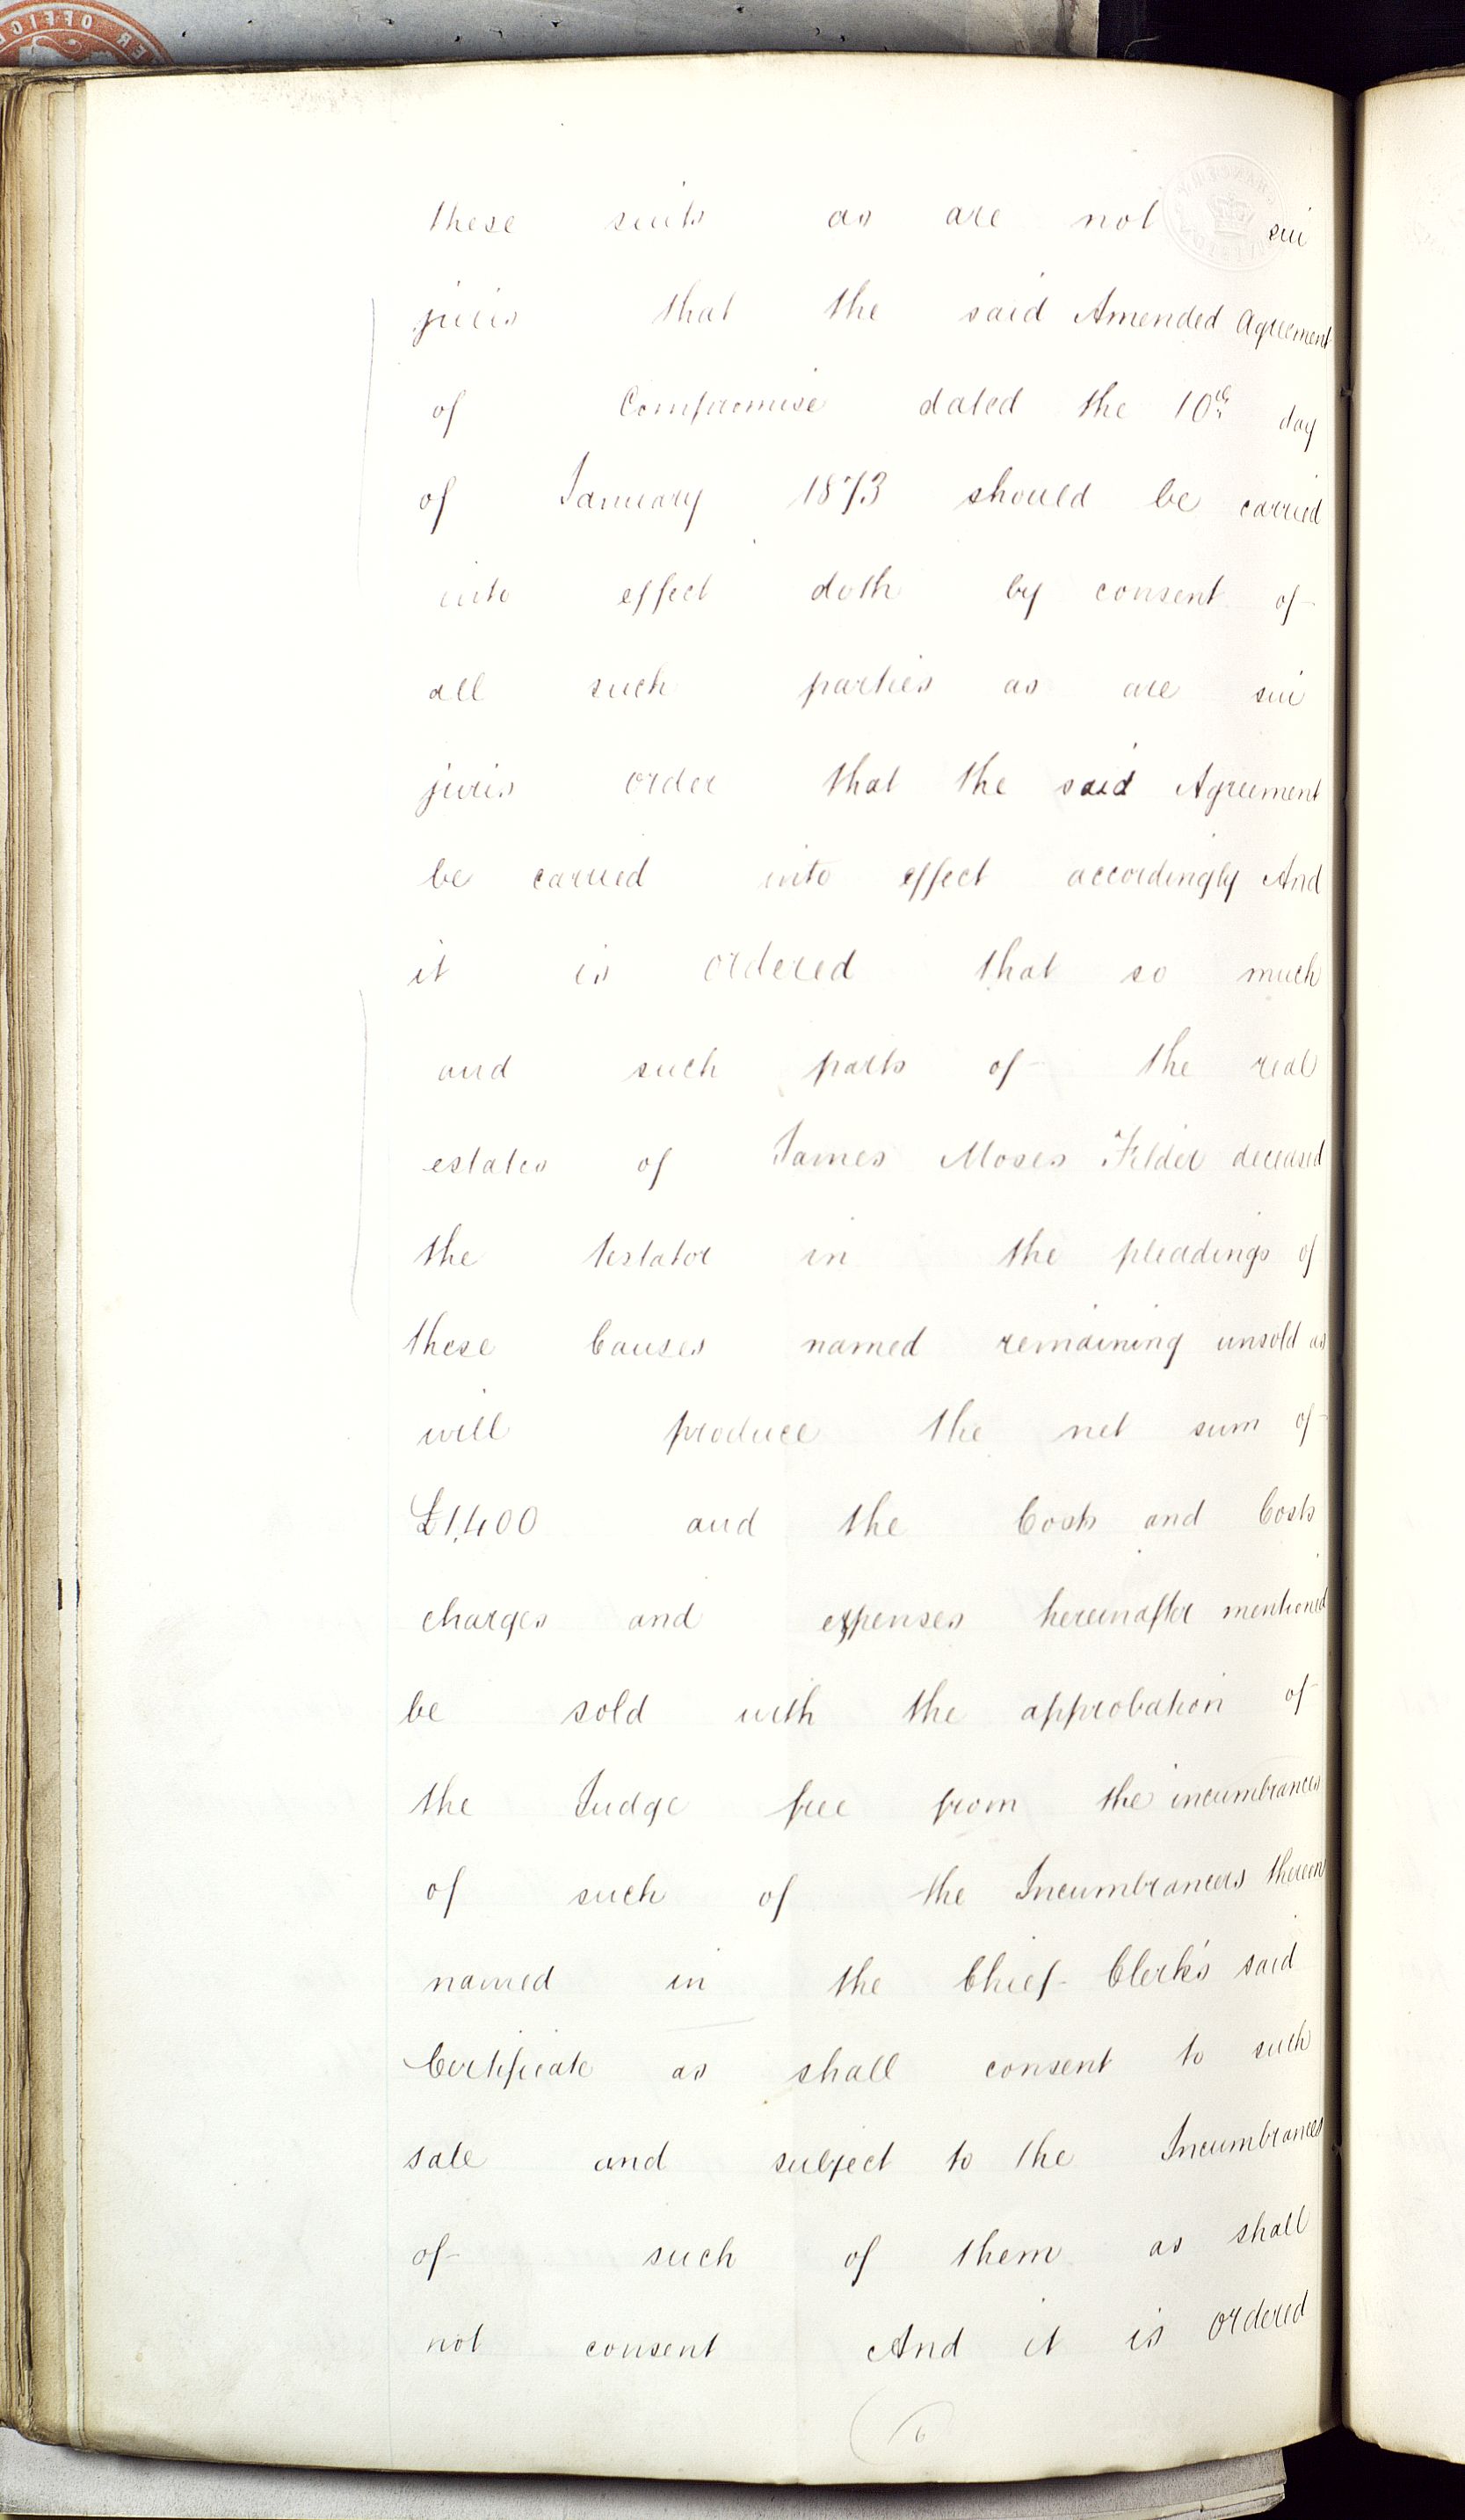 these suits as are not sui
juris that the said Amended Agreement
of Compromise dated the 10th day
of January 1873 should be carried
into effect doth by consent of
all such parties as are sui
juris order that the said Agreement
be carried into effect accordingly And
it is ordered that so much
and such parts of the real
estates of James Moses Felder deceased
the testator in the pleadings of
these Causes named remaining unsold as
will produce the net sum of
£1,400 and the Costs and Costs
charges and expenses hereinafter mentioned
be sold with the approbation of
the Judge free from the incumbrances
of such of the Incumbrancers therein
named in the Chief Clerk's said
Certificate as shall consent to such
sale and subject to the Incumbrances
of such of them as shall
not consent And it is ordered
6